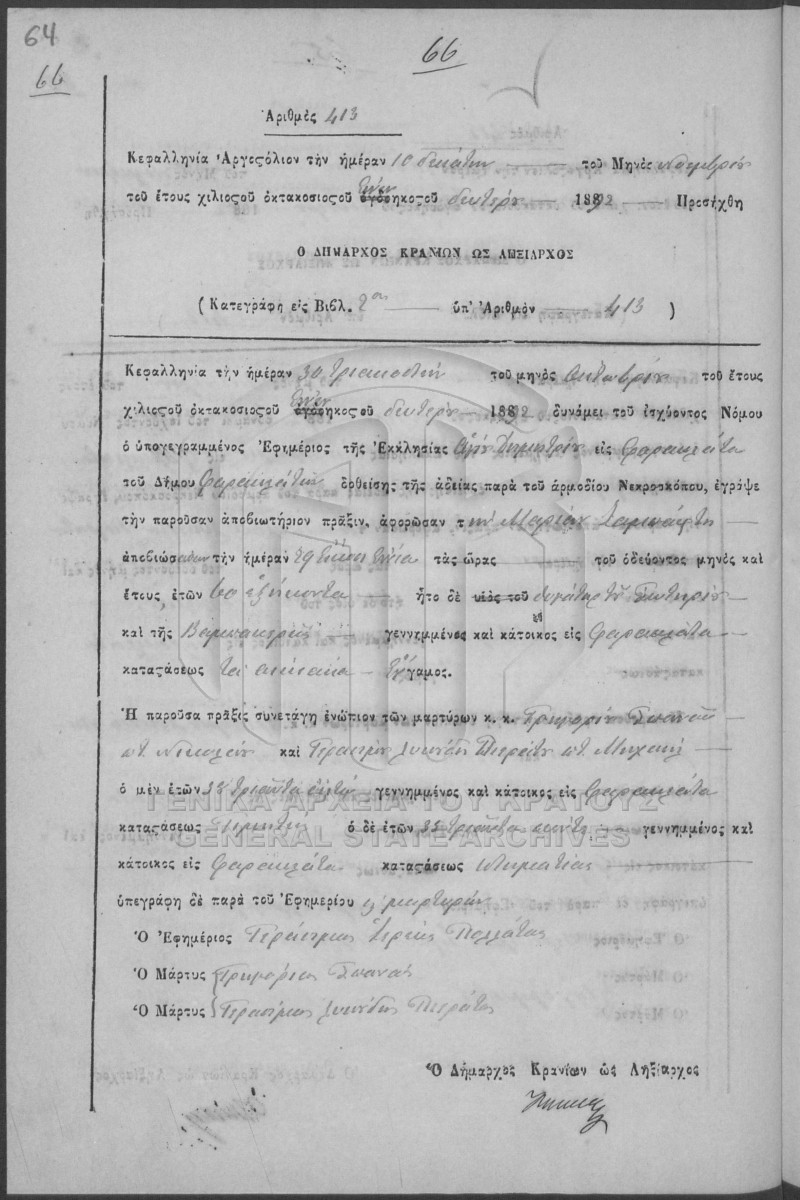 64
66
66
Ἀριθμὸς 413
Κεφαλληνία Ἀργοςόλιον τὴν ἡμέραν 10 δεκάτην τοῦ Μηνὸς Νοεμβρίου
τοῦ ἔτους χιλιοςοῦ ὀκτακοσιοςοῦ ὀγδοηκοςοῦ Ενεν δευτέρου 1892 Προσήχθη
Ο ΔΗΜΑΡΧΟΣ ΚΡΑΝΙΩΝ ΩΣ ΛΗΞΙΑΡΧΟΣ
( Κατεγράφη εἰς Βιβλ. 2ον ὑπ' Ἀριθμὸν 413 )
Κεφαλληνία τὴν ἡμέραν 30 τριακοστὴν τοῦ μηνὸς Οκτωβρίου τοῦ ἔτους
χιλιοςοῦ ὀκτακοσιοςοῦ ὀγδοηκοςοῦ Ενεν δευτέρου 1892 δυνάμει τοῦ ἰσχύοντος Νόμου
ὁ ὑπογεγραμμένος Ἐφημέριος τῆς Ἐκκλησίας Αγίου Δημητρίου εἰς Φαρακλάτα
τοῦ Δήμου Φαρακλάτων δοθείσης τῆς ἀδείας παρὰ τοῦ ἁρμοδίου Νεκροσκόπου, ἔγραψε
τὴν παροῦσαν ἀποβιωτήριον πρᾶξιν, ἀφορῶσαν τ ην Μαρίαν
ἀποβιώσασαν τὴν ἡμέραν 29 εἴκοσι εννέα τὰς ὥρας τοῦ ὁδεύοντος μηνὸς καὶ
ἔτους, ἐτῶν 60 εξήκοντα ἦτο δὲ υἱὸς τοῦ θυγάτηρ τοῦ Σωτηρίου
καὶ τῆς γεννημμένος καὶ κάτοικος εἰς Φαρακλάτα
καταςάσεως τὰ οικιακά Εγγαμος.
Ἡ παροῦσα πρᾶξις συνετάγη ἐνώπιον τῶν μαρτύρων κ. κ. Γρηγορίου Σπανού
ποτ. Νικολάου καὶ Γερασίμου Πιεράτου ποτ. Μιχαήλ
ὁ μὲν ἐτῶν 38 τριάντα οκτώ γεννημμένος καὶ κάτοικος εἰς Φαρακλάτα
καταςάσεως Κτηματίας ὁ δὲ ἐτῶν 35 τριάντα πέντε γεννημμένος καὶ
κάτοικος εἰς Φαρακλάτα καταςάσεως κτηματίας
ὑπεγράφη δὲ παρὰ τοῦ Ἐφημερίου κ μαρτύρων
Ὁ Ἐφημέριος Γεράσιμος Ιερεύς Πολλάτος
Ὁ Μάρτυς Γρηγόριος Σπανός
Ὁ Μάρτυς Γεράσιμος Πιεράτος
Ὁ Δήμαρχος Κρανίων ὡς Ληξίαρχος
ΓΕΝΙΚΑ ΑΡΧΕΙΑ ΤΟΥ ΚΡΑΤΟΥΣ
GENERAL STATE ARCHIVES